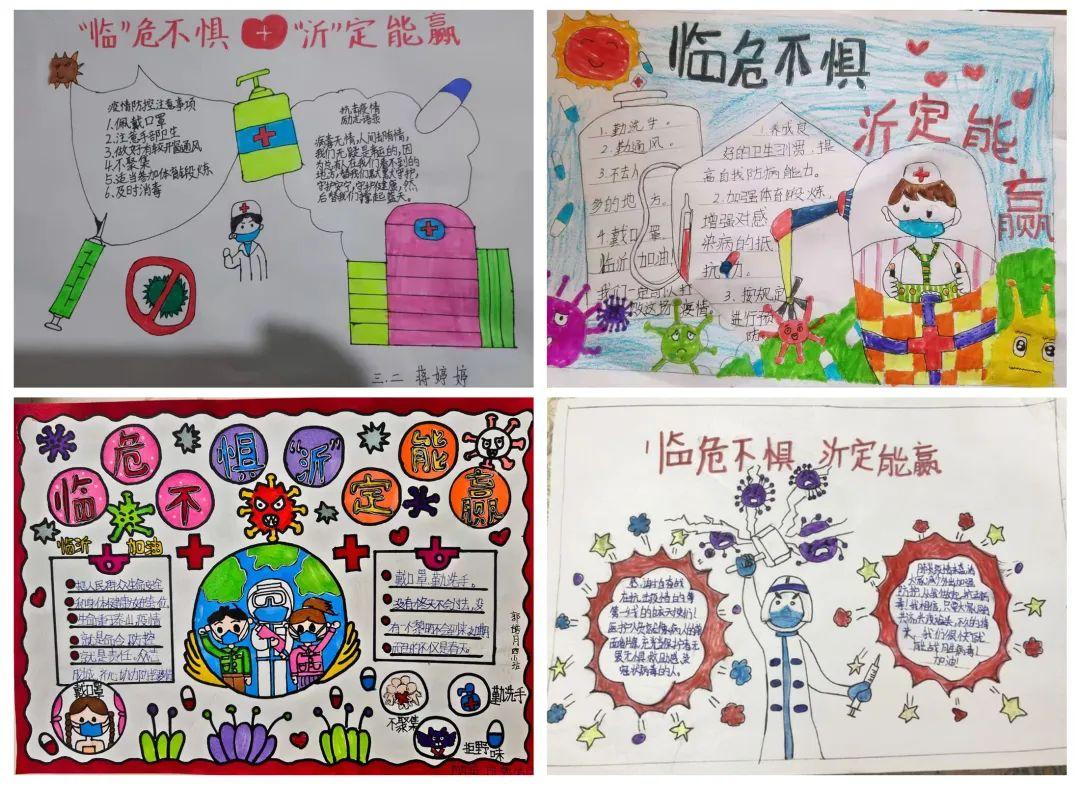 “临”危不惧 “沂”定能赢
疫情防控注意事项
1.佩戴口罩
2.注意手部卫生
3.做好
4.不聚集
5.适当参加体育锻炼
6.及时消毒
抗击疫情
励志语录
病毒无情,人间却有情,
我们无疑是幸运的,因
为总有人在我们看不到的
地方,替我们默默守护,
守护安宁,守护健康,然
后替我们撑起蓝天。
三.二 蒋婷婷
临危不惧
沂定能
赢
1.勤洗手。
2.勤通风。
3.不去人
多的地方。
4.戴口罩。
临沂加油!
我们一定可以打
败这场疫情。
1.养成良
好的卫生习惯,提
高自我防病能力。
2.加强体育锻炼,
增强对感
染病的抵
抗力。
3.按规定
进行预
防。
临危不惧“沂”定能赢
临沂 加油
把人民群众生命安全
和身体健康放在第一位
生命重于泰山,疫情
就是命令,防控
就是责任。众志
成城,齐心协力
戴口罩,勤洗手。
没有一个冬天不会过去,没
有一个黎明不会到来
而且的不仅是春天。
戴口罩
勤洗手
不聚集
拒野味
临危不惧 沂定能赢
在抗击疫情的
第一线的白衣天使们!
我相信,只要大家
我们很快就
能战胜病毒!
加油!